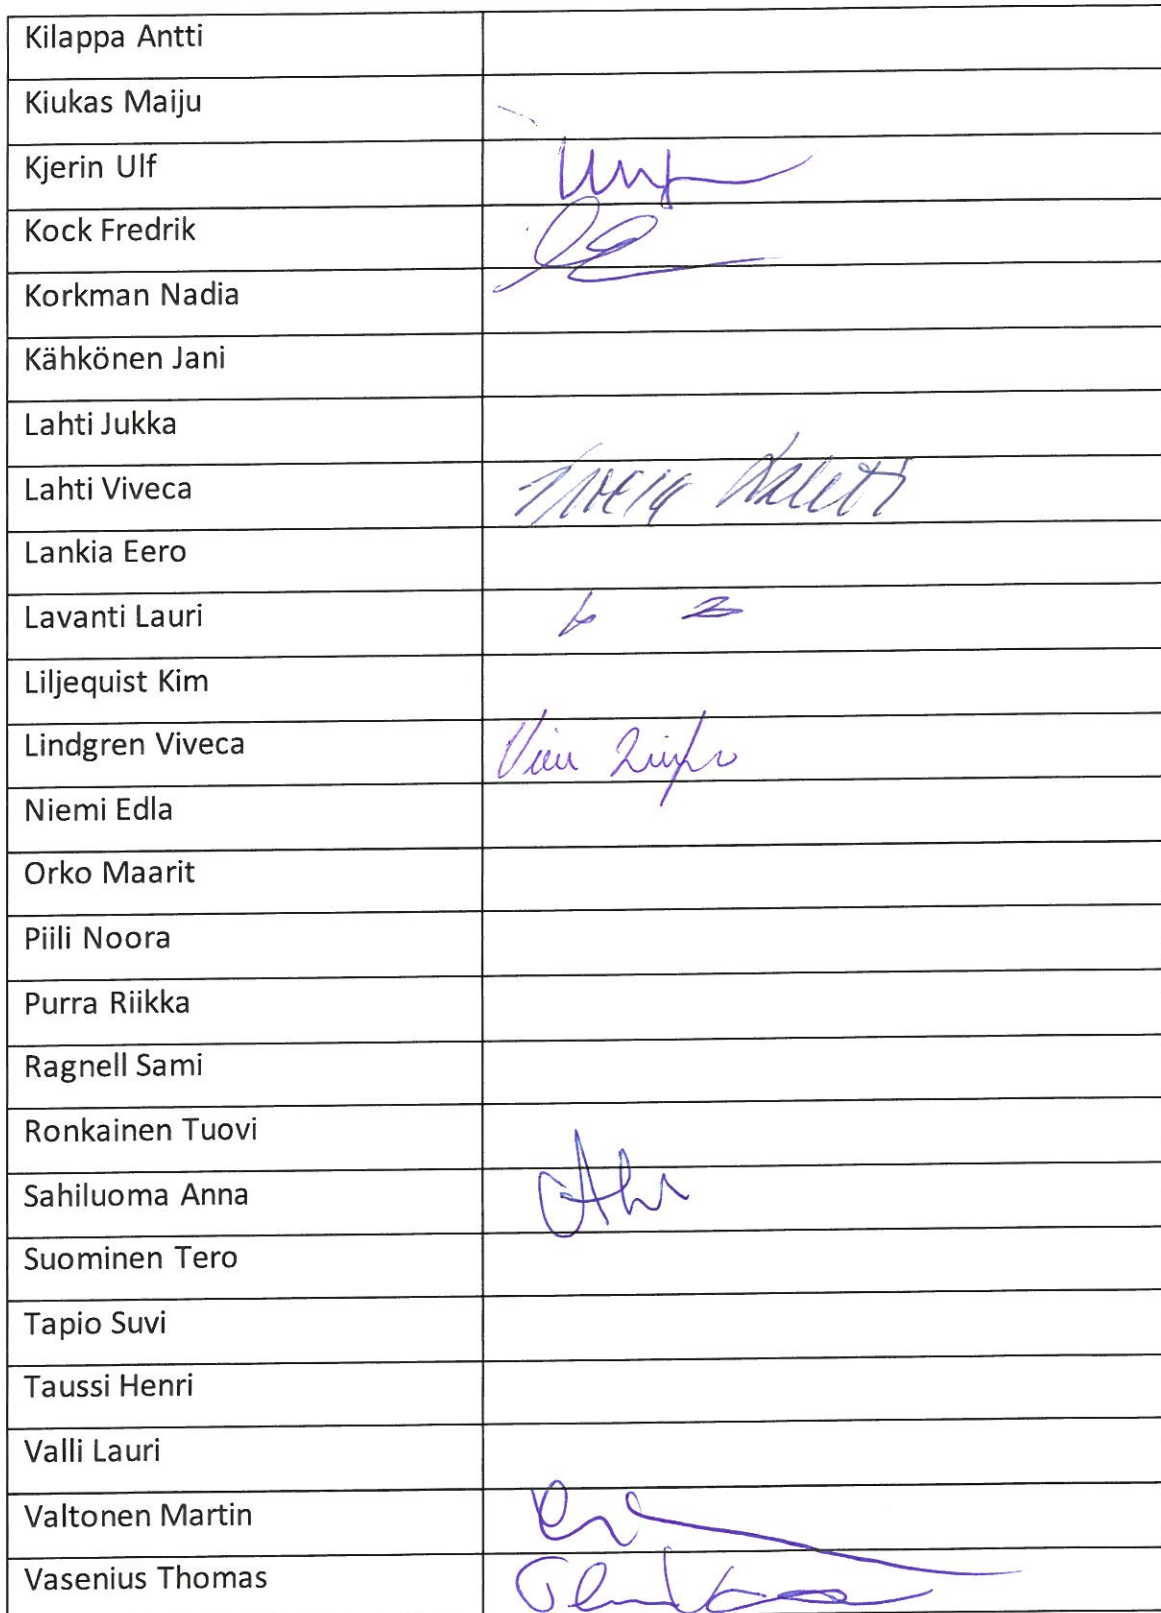 Kilappa Antti
Kiukas Maiju
Kjerin Ulf
Kock Fredrik
Korkman Nadia
Kähkönen Jani
Lahti Jukka
Lahti Viveca
Lankia Eero
Lavanti Lauri
Liljequist Kim
Lindgren Viveca
Niemi Edla
Orko Maarit
Piili Noora
Purra Riikka
Ragnell Sami
Ronkainen Tuovi
Sahiluoma Anna
Suominen Tero
Tapio Suvi
Taussi Henri
Valli Lauri
Valtonen Martin
Vasenius Thomas